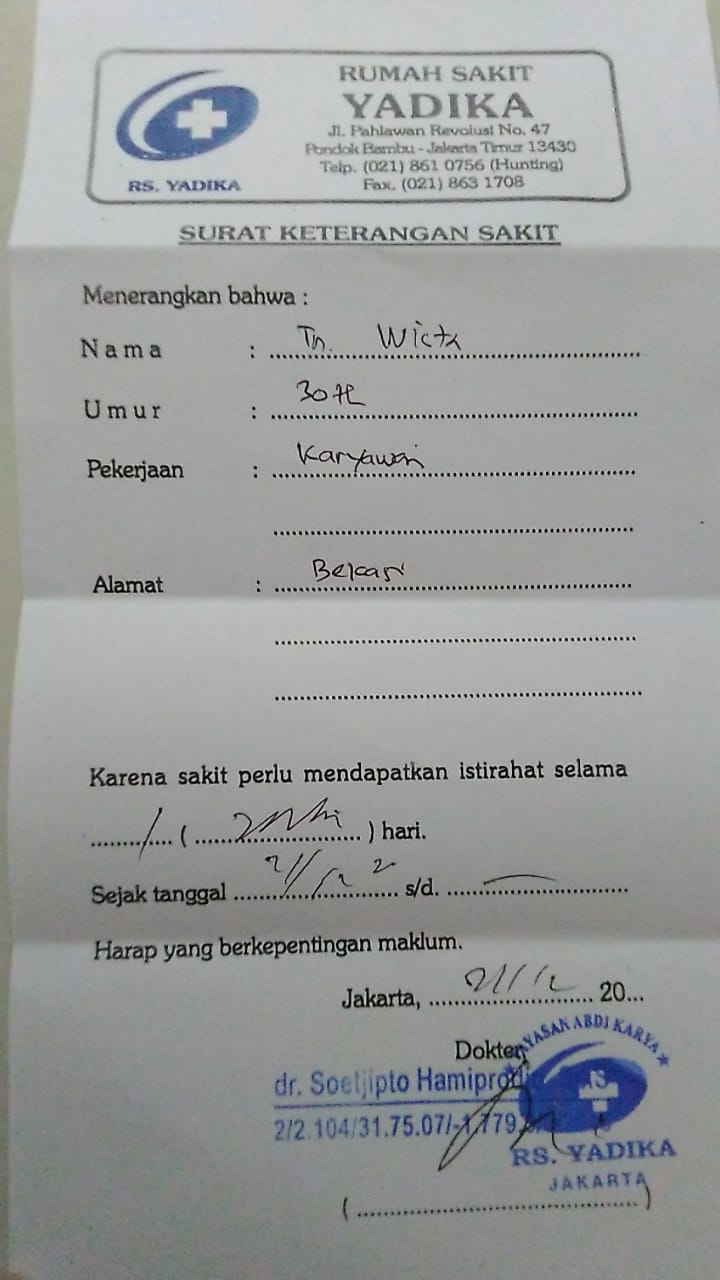 RUMAH SAKIT
YADIKA
Jl. Pahlawan Revolusi No. 47
Pondok Bambu - Jakarta Timur 13430
Telp. (021) 861 0756 (Hunting)
Fax. (021) 863 1708
RS. YADIKA
SURAT KETERANGAN SAKIT
Menerangkan bahwa :
Nama : Tn. Wicta
Umur : 30 th
Pekerjaan : Karyawan
Alamat : Bekasi
Karena sakit perlu mendapatkan istirahat selama
1 ( ) hari.
Sejak tanggal 21/12 s/d. —
Harap yang berkepentingan maklum.
Jakarta, 21/12 20...
Dokter
YAYASAN ABDI KARYA
dr. Soetjipto
2/2.104/31.75.07/-1.779
RS. YADIKA
JAKARTA
(..............................)